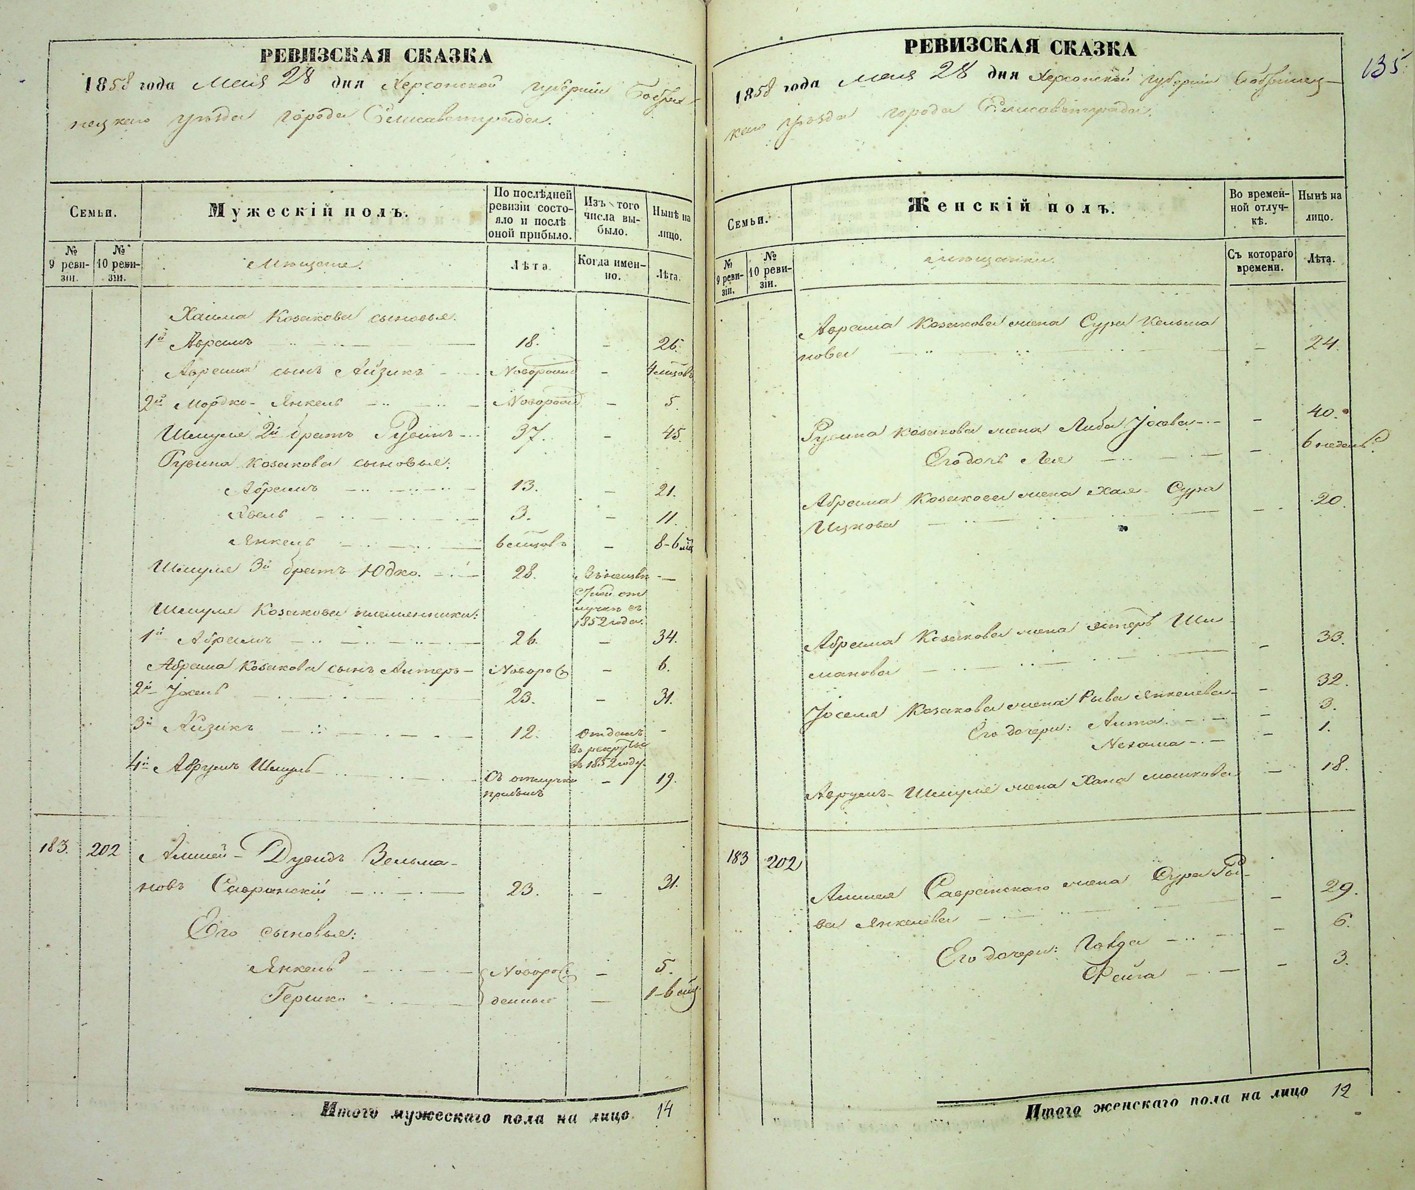 РЕВИЗСКАЯ СКАЗКА
1858 года Мая 28 дня Херсонской губернии Бобри-
нецкаго уезда города Елисаветграда.
Семьи.
Мужескій полъ.
По послѣдней ревизіи состояло и послѣ оной прибыло.
Изъ того числа выбыло.
Нынѣ на лицо.
№ 9 ревизіи.
№ 10 ревизіи.
Мещане.
Лѣта.
Когда именно.
Лѣта.
Хаима Козакова сыновья:
1й Абрамъ 18. – 26.
Абрама сынъ Айзикъ Новорожд – 4 месяцовъ
2й Мордко-Янкель Новорожд – 5.
Шмуля 2й братъ Рувинъ 37. – 45
Рувина Козакова сыновья:
Абрамъ 13. – 21.
Лейб 3. – 11
Янкель 6 месяцовъ – 8-6 мес
Шмуля 3й братъ Юдко. 28. –
Шмуля Козакова племянники:
отлучке въ 1852 годе.
1й Абрамъ 26. – 34.
Абрама Козакова сынъ Алтеръ Новорож – 6.
2й Іосель 23. – 31.
3й Айзикъ 12. Отданъ въ рекруты въ 1852 году –
4й Аврумъ Шмуль Съ отлучки прибылъ – 19.
183. 202 Дувидъ Вельма-
новъ Савранскій 23. – 31.
Его сыновья:
Янкель Новорож – 5.
Гершко денные – 1-6 мес
Итого мужескаго пола на лицо 14
135
РЕВИЗСКАЯ СКАЗКА
1858 года Мая 28 дня Херсонской губерніи Бобринец-
каго уезда города Елисаветграда.
Семьи.
Женскій полъ.
Во временной отлучкѣ.
Нынѣ на лицо.
№ 9 ревизіи.
№ 10 ревизіи.
мещанки.
Съ котораго времени.
Лѣта.
Абрама Козакова жена Сура Кельма
нова – 24.
Рувина Козакова жена Либа Іосева – 40.
Его дочь Лея – 6 недель
Абрама Козакова жена Хая-Сура
Ицкова – 20
Абрама Козакова жена Эстеръ Шли-
манова – 33.
Іоселя Козакова жена Рыва Янкелева – 32.
Его дочери: Анта – 3.
Нехама – 1.
Аврумъ-Шмуля жена Хана Мошкова – 18.
183 202
Савранскаго жена Сура Ры-
ва Янкелева – 29.
Его дочери: – 6.
Фейга – 3.
Итого женскаго пола на лицо 12